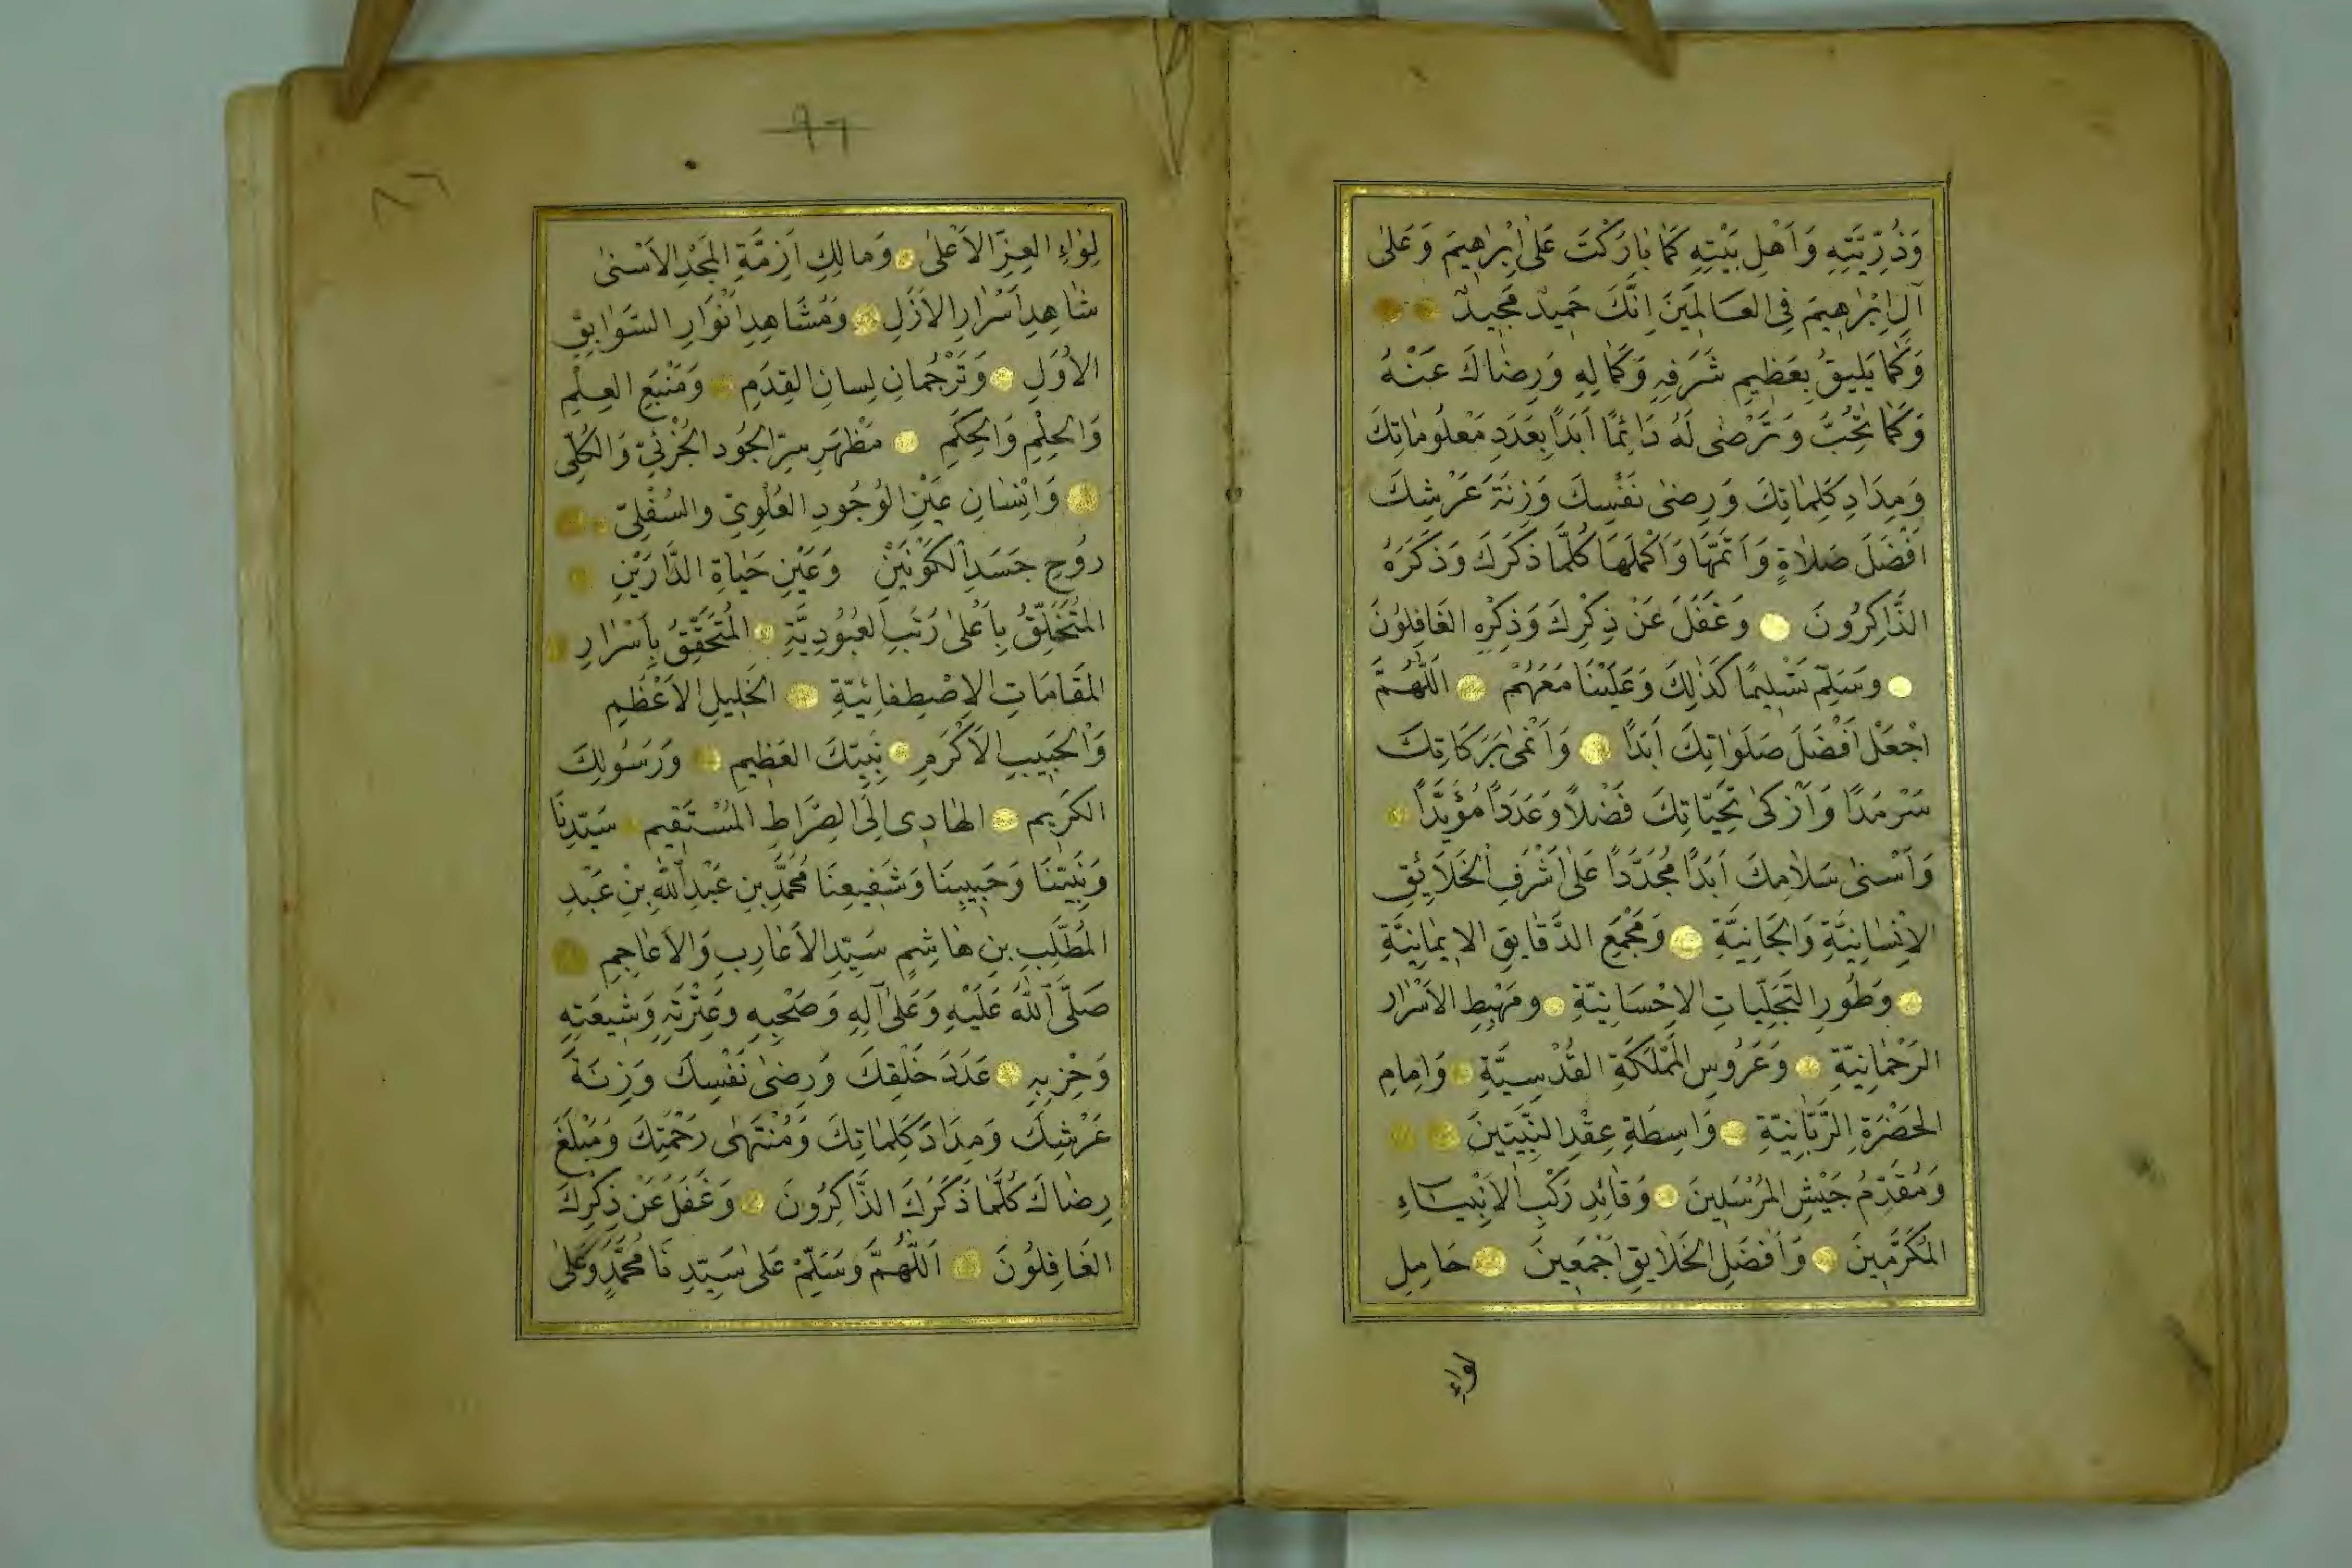 وَذُرِّيَّتِهِ وَاَهْلِ بَيْتِهِ كَمَا بَارَكْتَ عَلٰى اِبْرٰهِيمَ وَعَلٰى
آلِ اِبْرٰهِيمَ فِى العَالَمِينَ اِنَّكَ حَمِيدٌ مَجِيدٌ
وَكَمَا يَلِيقُ بِعَظِيمِ شَرَفِهِ وَكَمَالِهِ وَرِضَاكَ عَنْهُ
وَكَمَا تُحِبُّ وَتَرْضٰى لَهُ دَائِمًا اَبَدًا بِعَدَدِ مَعْلُومَاتِكَ
وَمِدَادِ كَلِمَاتِكَ وَرِضٰى نَفْسِكَ وَزِنَةَ عَرْشِكَ
اَفْضَلَ صَلاٰةٍ وَاَتَمَّهَا وَاَكْمَلَهَا كُلَّمَا ذَكَرَكَ وَذَكَرَهُ
الذَّاكِرُونَ وَغَفَلَ عَنْ ذِكْرِكَ وَذِكْرِهِ الغَافِلُونَ
وَسَلِّمْ تَسْلِيمًا كَذٰلِكَ وَعَلَيْنَا مَعَهُمْ اَللّٰهُمَّ
اجْعَلْ اَفْضَلَ صَلَوَاتِكَ اَبَدًا وَاَنْمٰى بَرَكَاتِكَ
سَرْمَدًا وَاَزْكٰى تَحِيَّاتِكَ فَضْلاً وَعَدَدًا مُؤَبَّدًا
وَاَسْنٰى سَلاٰمِكَ اَبَدًا مُجَدَّدًا عَلٰى اَشْرَفِ الْخَلاَئِقِ
الاِنْسَانِيَّةِ وَالجَانِيَّةِ وَمَجْمَعِ الدَّقَايِقِ الاِيمَانِيَّةِ
وَطُورِ التَّجَلِّيَاتِ الاِحْسَانِيَّةِ ومَهْبِطِ الاَسْرَارِ
الرَحْمَانِيَّةِ وَعَرُوسِ المَمْلَكَةِ القُدْسِيَّةِ وَاِمَامِ
الحَضْرَةِ الرَّبَّانِيَّةِ وَاسِطَةِ عِقْدِ النَّبِيِّينَ
وَمُقَدِّمُ جَيْشِ المُرْسَلِينَ وَقَائِدِ رَكْبِ الاَنْبِيَاءِ
المُكَرَّمِينَ وَاَفْضَلِ الخَلاَيِقِ اَجْمَعِينَ حَامِلِ
لواءِ
٩٦
٨٦
لِوَاءِ العِزِّ الاَعْلٰى وَمَالِكِ اَزِمَّةِ المَجْدِ الاَسْنٰى
شَاهِدِ اَسْرَارِ الاَزَلِ وَمُشَاهِدِ اَنْوَارِ السَّوَابِقِ
الاُوَلِ وَتَرْجُمَانِ لِسانِ القِدَمِ وَمَنْبَعِ العِلْمِ
وَالحِلْمِ وَالحِكَمِ مَظْهَرِ سِرِّ الجُودِ الجُزْئِيّ وَالكُلّى
وَاِنْسَانِ عَيْنِ الوُجُودِ العُلْوِيّ والسُفْلِيّ
رُوحِ جَسَدِ الكَوْنَيْنِ وَعَيْنِ حَيَاةِ الدَّارَيْنِ
المُتَخَلِّقُ بِاَعْلٰى رُتَبِ العُبُودِيَّةِ المُتَحَقِّقُ بِاَسْرَارِ
المَقَامَاتِ الاِصْطِفَائِيَّةِ الخَلِيلِ الاَعْظَمِ
وَالْحَبِيبِ الاَكْرَمِ نَبِيِّكَ العَظِيمِ وَرَسُولِكَ
الكَرِيمِ الهَادِى اِلَى الصِّرَاطِ المُسْتَقِيمِ سَيِّدِنَا
وَنَبِيِّنَا وَحَبِيبِنَا وَشَفِيعِنَا مُحَمَّدِ بنِ عَبْدِ اللّٰهِ بْنِ عَبْدِ
المُطَّلِبِ بنِ هَاشِمٍ سَيِّدِ الاَعَارِبِ وَالاَعَاجِمِ
صَلَّى اللّٰهُ عَلَيْهِ وَعَلٰى آلِهِ وَصَحْبِهِ وعِتْرَتِهِ وَشِيعَتِهِ
وَحِزْبِهِ عَدَدَ خَلْقِكَ وَرِضٰى نَفْسِكَ وَزِنَةَ
عَرْشِكَ وَمِدَادَ كَلِمَاتِكَ وَمُنْتَهٰى رَحْمَتِكَ وَمَبْلَغَ
رِضَاكَ كُلَّمَا ذَكَرَكَ الذَّاكِرُونَ وَغَفَلَ عَنْ ذِكْرِكَ
الغَافِلُونَ اَللّٰهُمَّ وَسَلِّمْ عَلٰى سَيِّدِنَا مُحَمَّدٍ وَعَلٰى